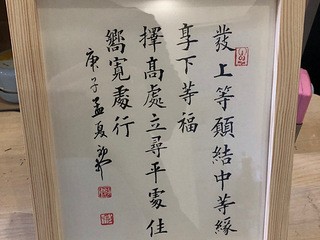 發上等願結中等緣
享下等福
擇高處立尋平處住
嚮寬處行
庚子孟夏